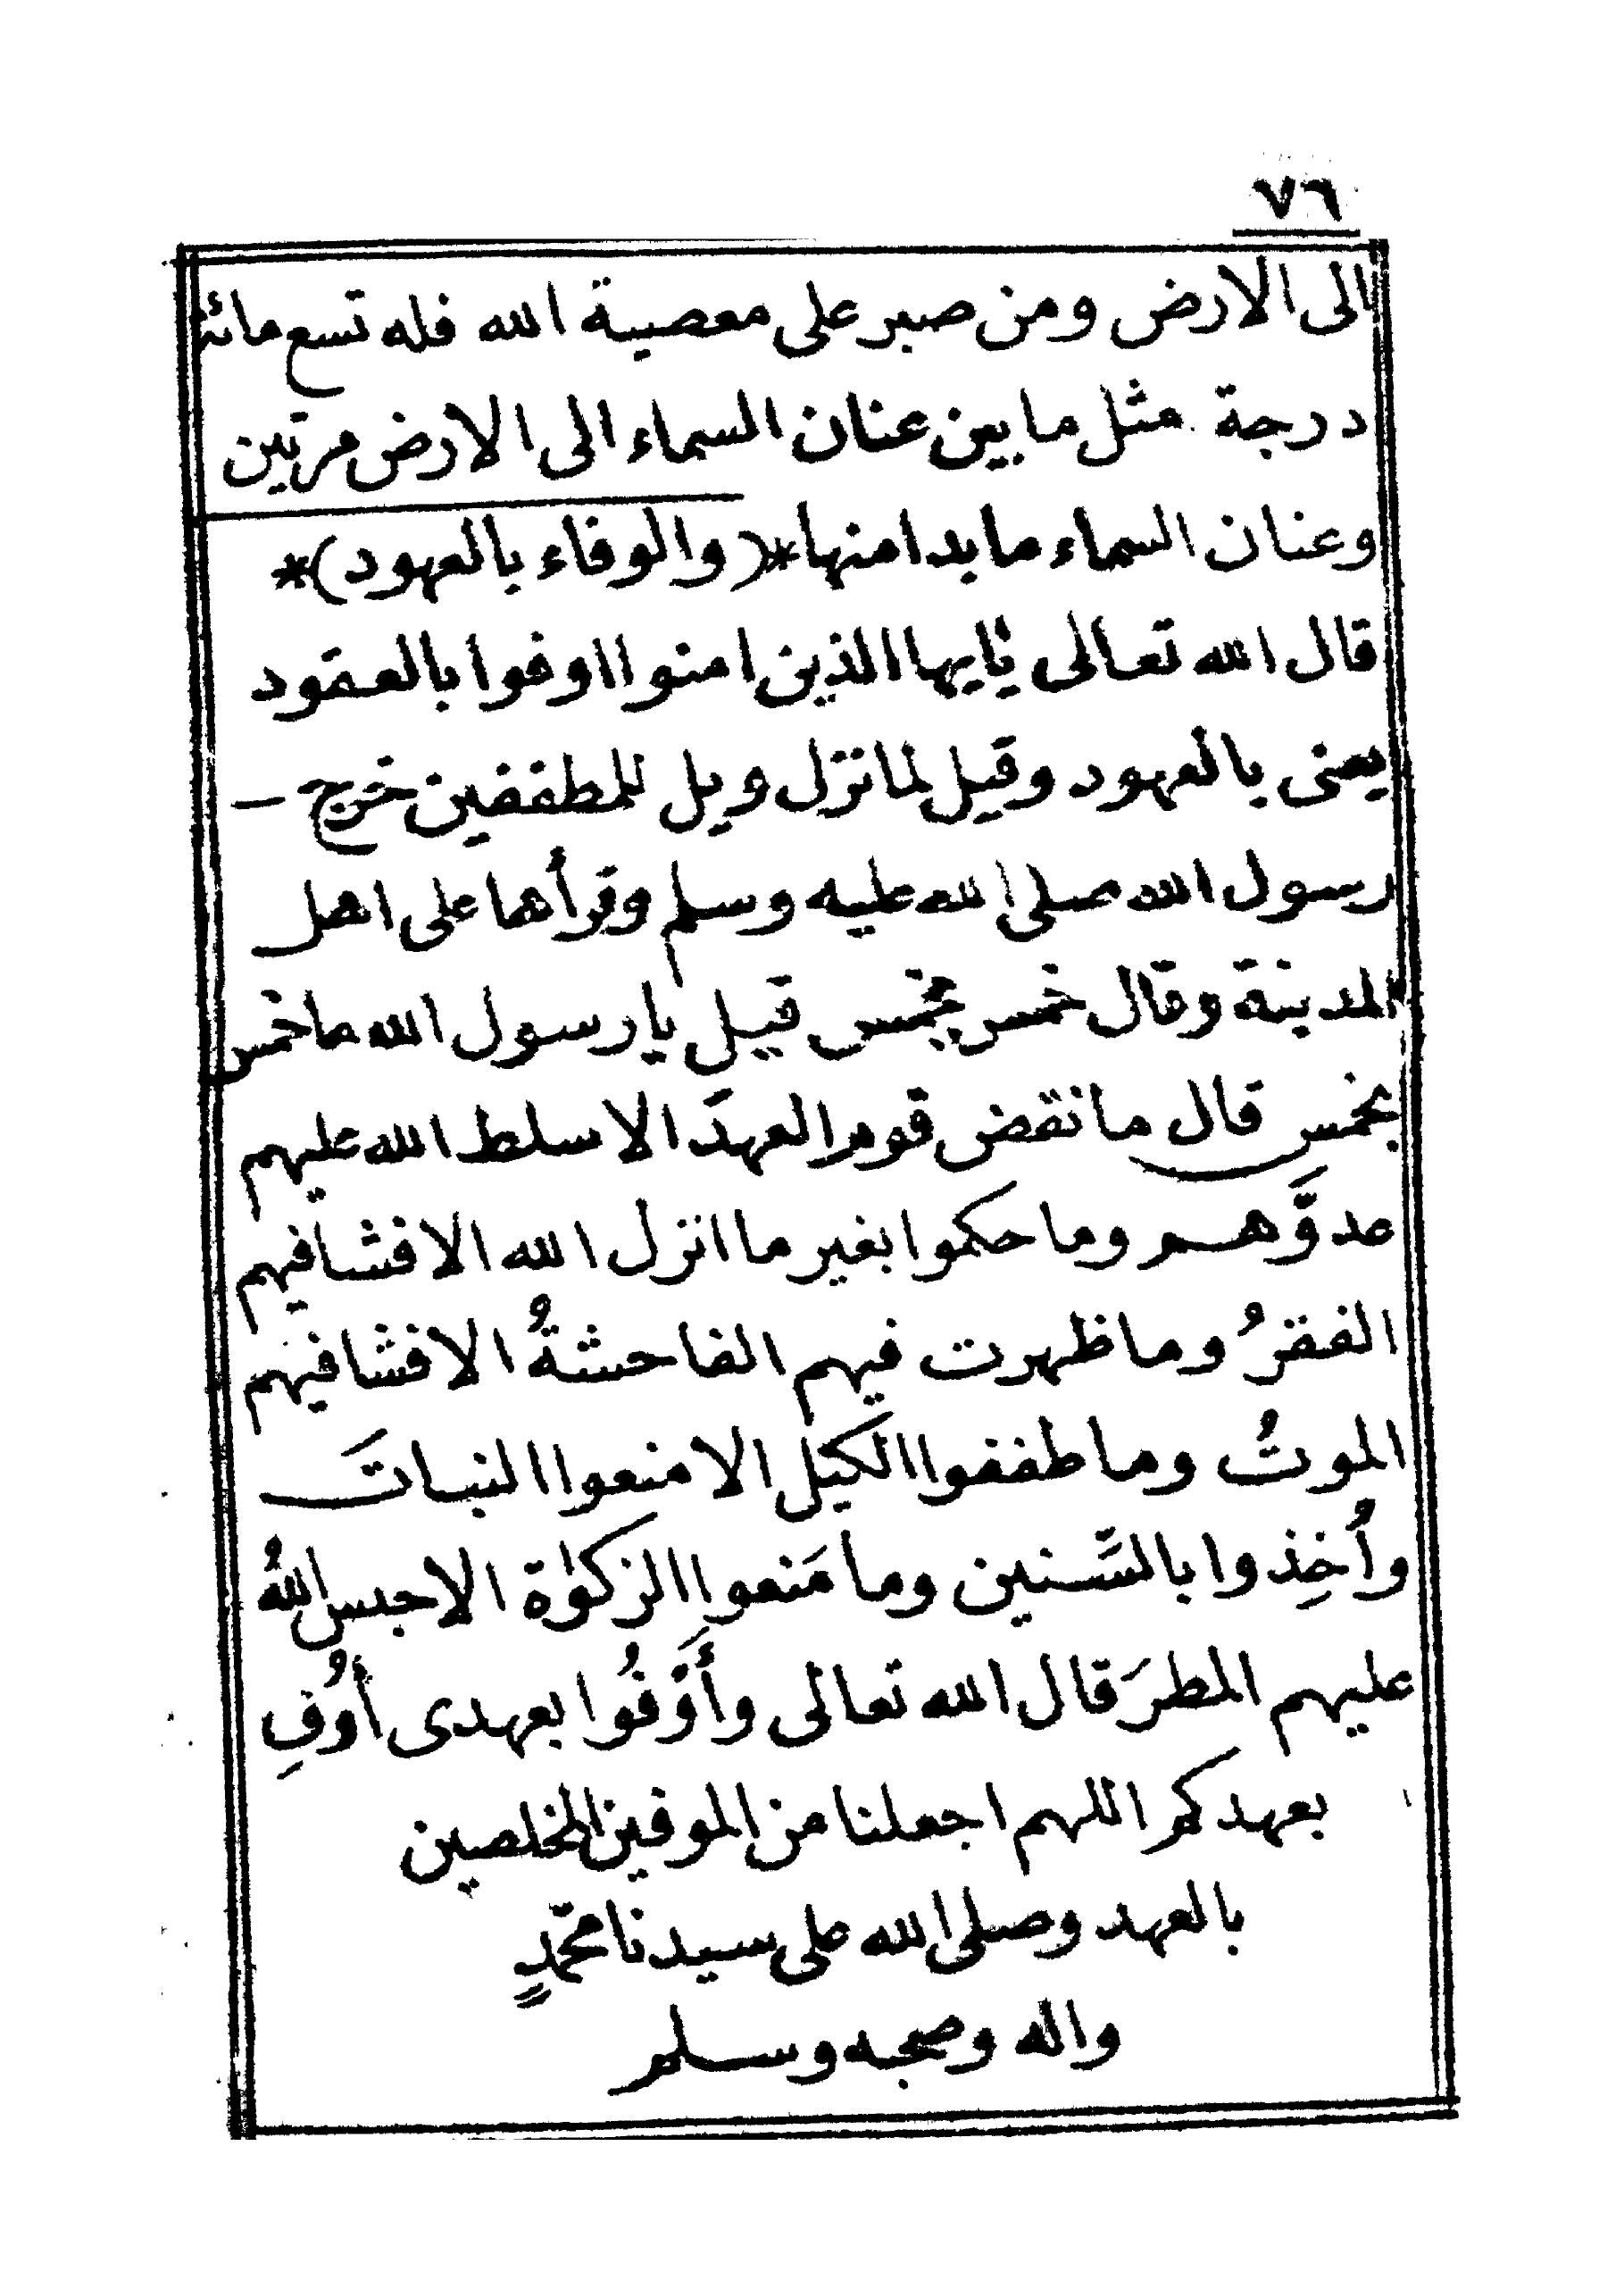 ٧٦
الى الارض ومن صبر على معصية الله فله تسع مائة
درجة مثل ما بين عنان السماء الى الارض مرتين
وعنان السماء ما بدا منها *( والوفاء بالعهود )*
قال الله تعالى يٰايها الذين امنوا اوفوا بالعقود
يعنى بالعهود وقيل لما نزل ويل للمطففين خرج —
رسول الله صلى الله عليه وسلم وقرأها على اهل
المدينة وقال خمس بخمس قيل يا رسول الله ما خمس
بخمس قال ما نقض قوم العهدَ الا سلط الله عليهم
عدوَّهم وما حكموا بغير ما انزل الله الا فشا فيهم
الفقرُ وما ظهرت فيهم الفاحشةُ الا فشا فيهم
الموتُ وما طففوا الكيل الا منعوا النباتَ
وأُخِذوا بالسَّنين وما مَنعوا الزكوٰة الا حبس اللهُ
عليهم المطرَ قال الله تعالى وأَوْفُوا بعهدى أُوفِ
بعهدكم اللهم اجعلنا من الموفين المخلصين
بالعهد وصلى الله على سيدنا محمّدٍ
واله وصحبه وسلم